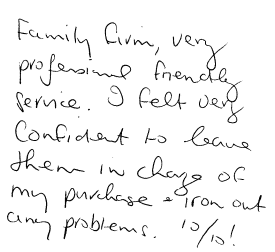 Family firm, very
professional friendly
service. I felt very
Confident to leave
them in charge of
my purchase + iron out
any problems. 10/10!